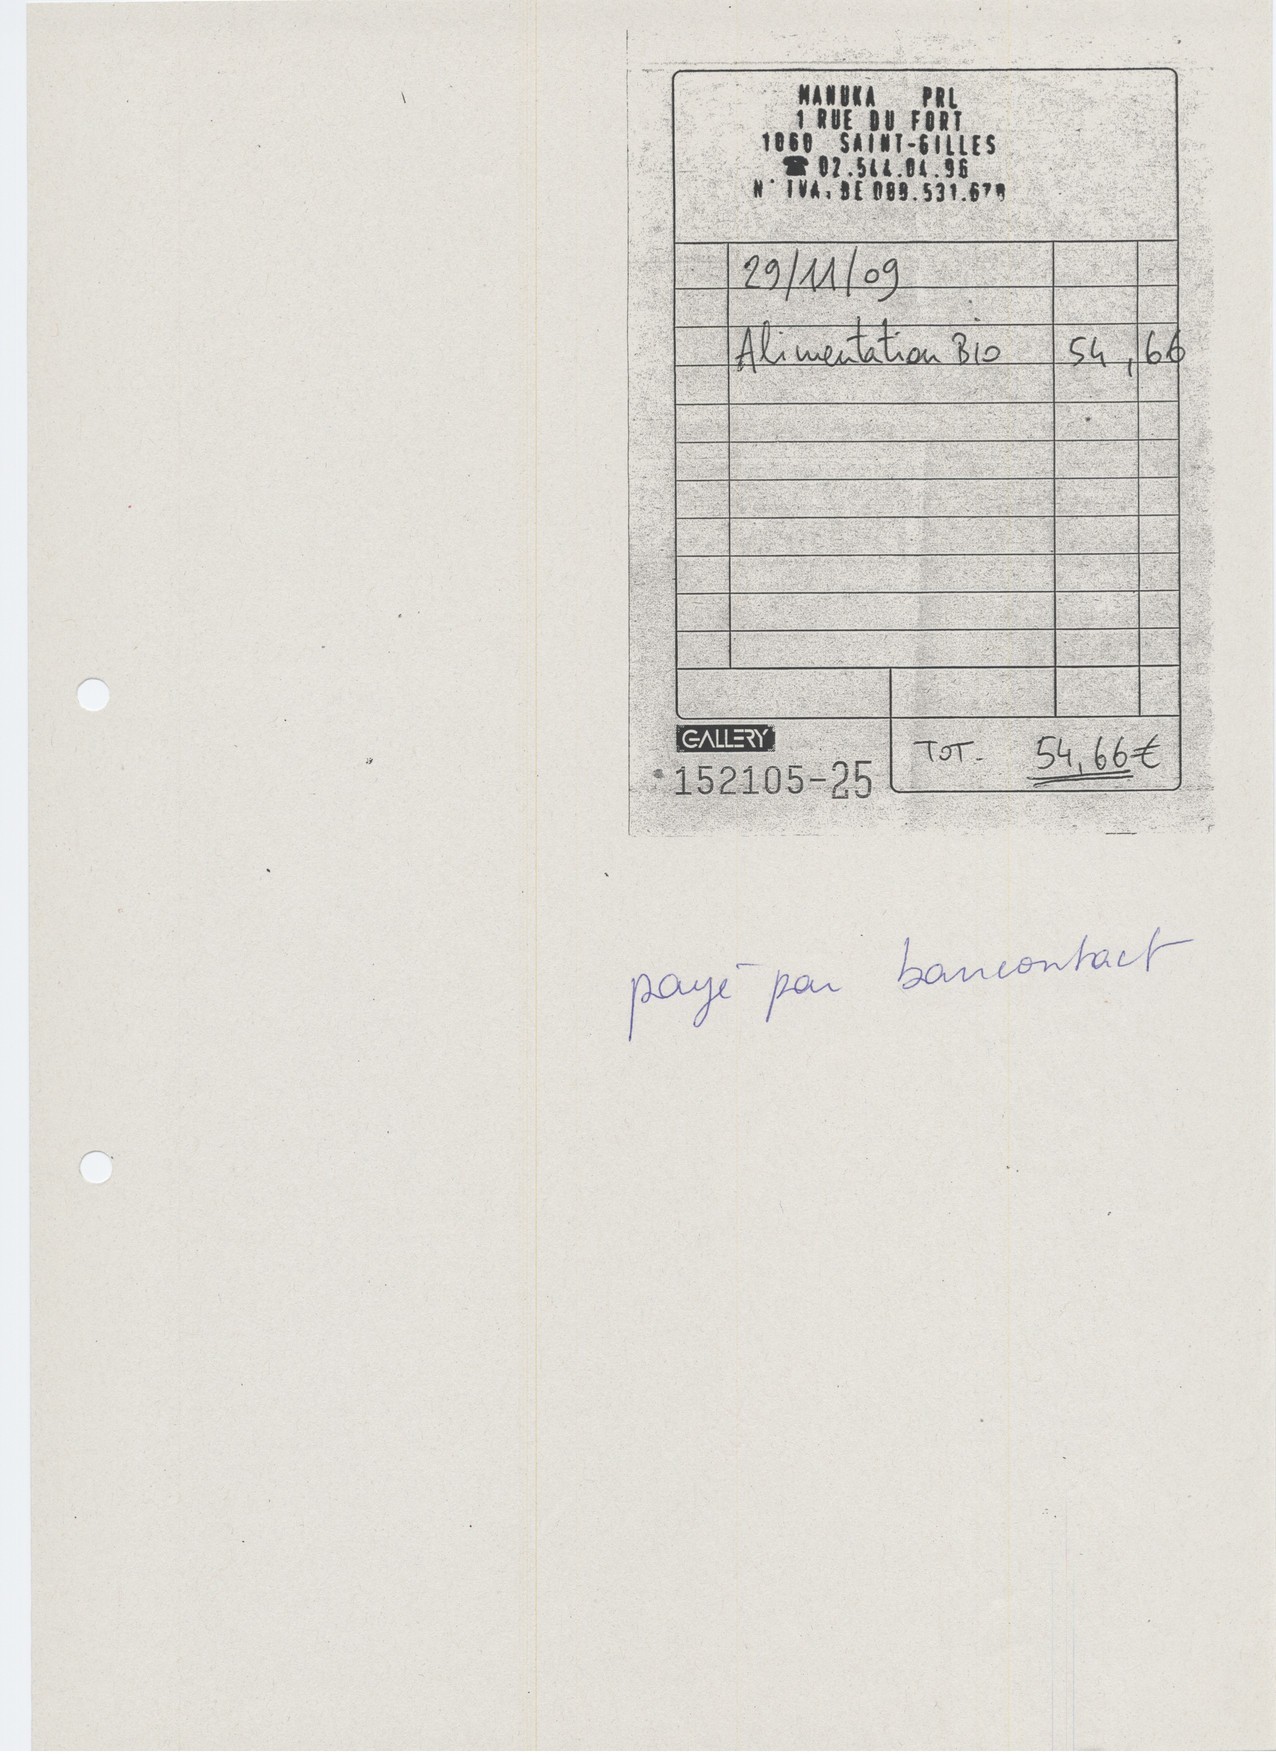 MANUKA PRL
1 RUE DU FORT
1060 SAINT-GILLES
☎ 02.544.04.96
N° TVA: BE 089.531.678
29/11/09
Alimentation BIO 54,66
GALLERY
TOT. 54,66€
152105-25
payé par bancontact